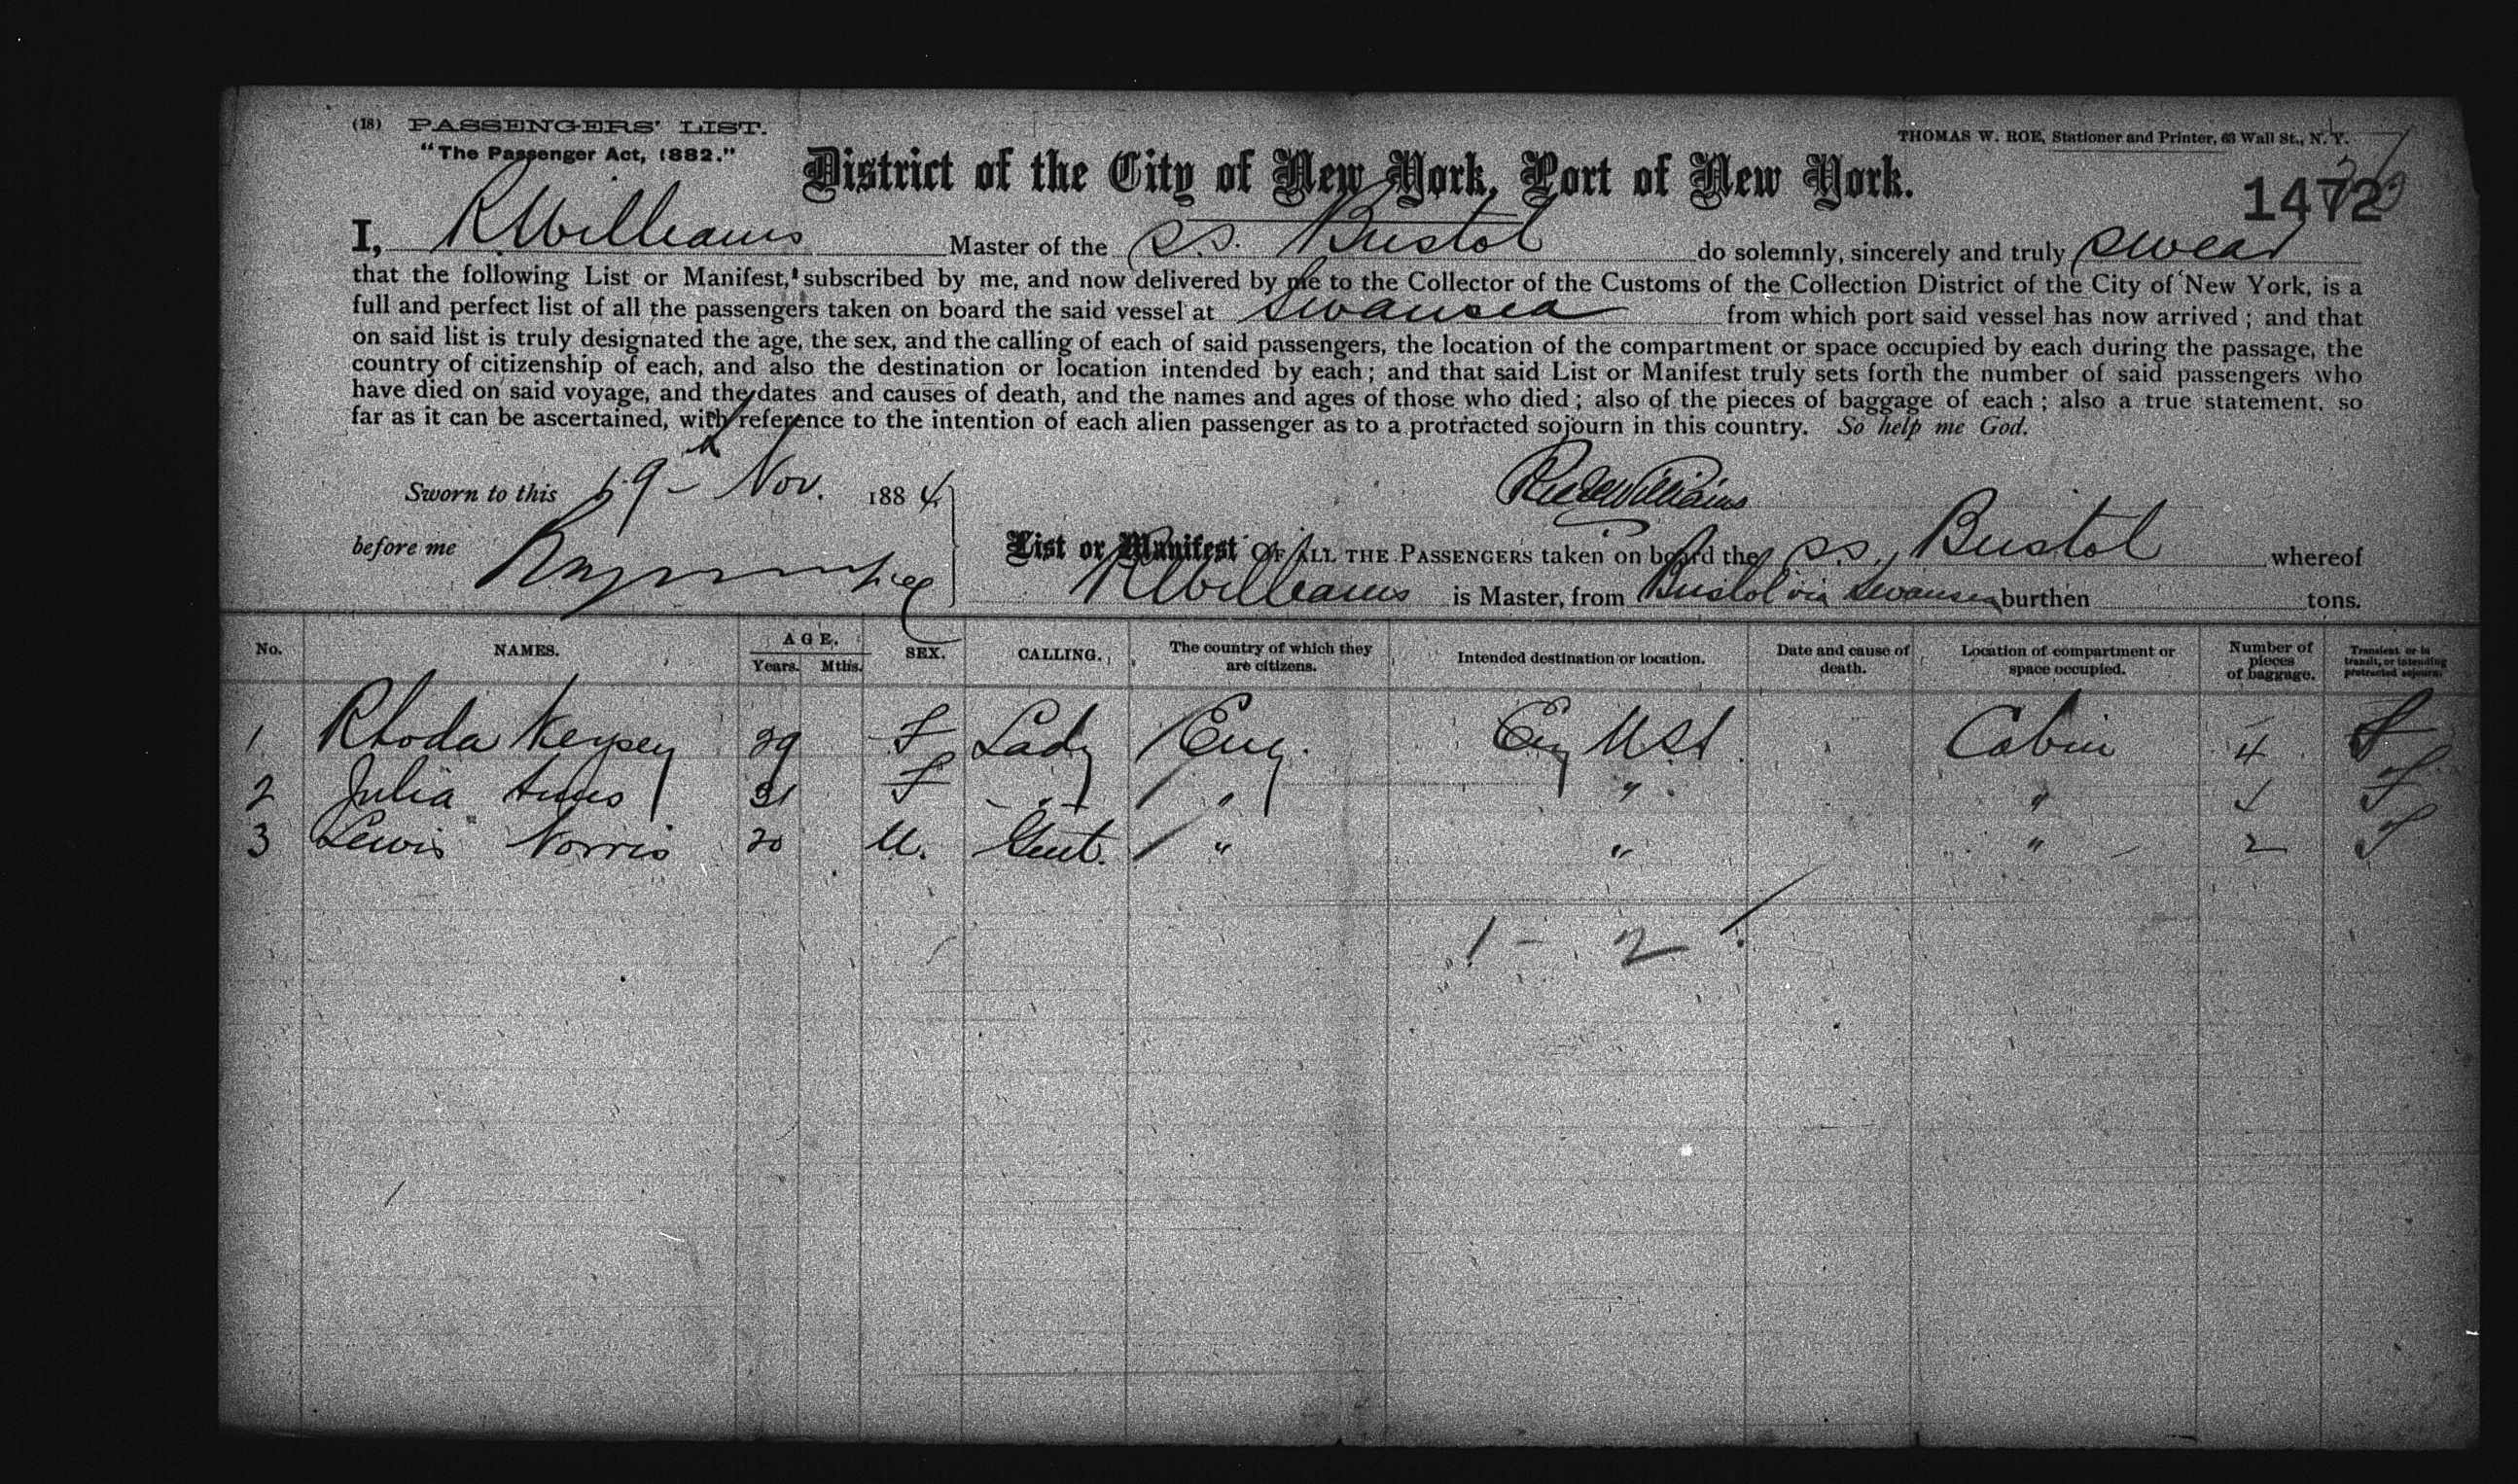 (18) PASSENGERS' LIST.
"The Passenger Act, 1882."
THOMAS W. ROE, Stationer and Printer, 63 Wall St., N. Y.
District of the City of New York, Port of New York.
1472
I, R Williams Master of the S.S. Bristol do solemnly, sincerely and truly swear
that the following List or Manifest, subscribed by me, and now delivered by me to the Collector of the Customs of the Collection District of the City of New York, is a
full and perfect list of all the passengers taken on board the said vessel at Swansea from which port said vessel has now arrived; and that
on said list is truly designated the age, the sex, and the calling of each of said passengers, the location of the compartment or space occupied by each during the passage, the
country of citizenship of each, and also the destination or location intended by each; and that said List or Manifest truly sets forth the number of said passengers who
have died on said voyage, and the dates and causes of death, and the names and ages of those who died; also of the pieces of baggage of each; also a true statement, so
far as it can be ascertained, with reference to the intention of each alien passenger as to a protracted sojourn in this country. So help me God.
Sworn to this 19th Nov. 1884
Williams
before me
List or Manifest OF ALL THE PASSENGERS taken on board the S.S. Bristol whereof
R Williams is Master, from Bristol via Swansea burthen tons.
No. NAMES. AGE. Years. Mths. SEX. CALLING. The country of which they are citizens. Intended destination or location. Date and cause of death. Location of compartment or space occupied. Number of pieces of baggage. Transient or in transit, or intending protracted sojourn.
1 Rhoda 29 F Lady Eng. USA Cabin 4
2 Julia 31 F " " " "
3 Lewis Norris 20 M. Gent. " " " 2
1 - 2